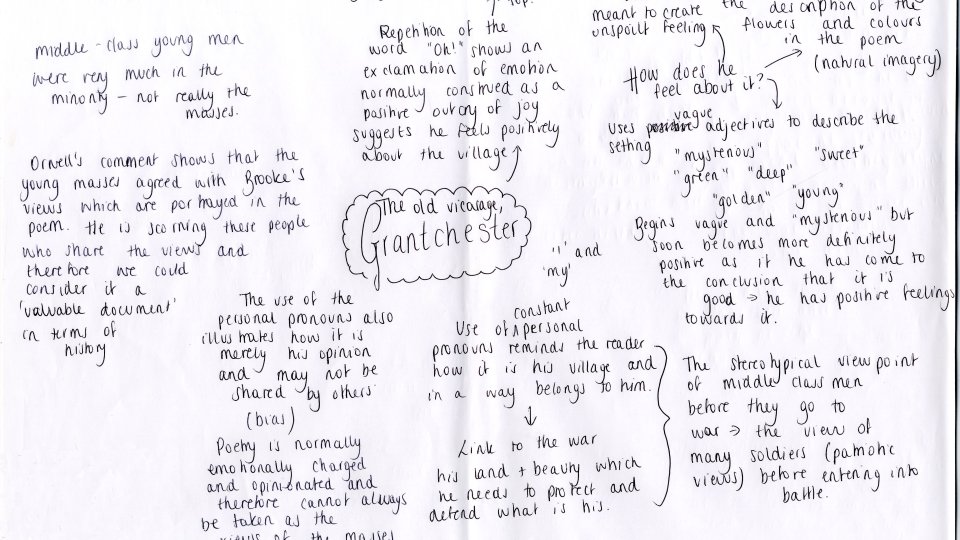 top.
middle-class young men
were very much in the
minority - not really the
masses.
Repetition of the
word "Oh!" shows an
exclamation of emotion
normally construed as a
positive outcry of joy
suggests he feels positively
about the village
meant to create the description of the
unspoilt feeling flowers and colours
in the poem
(natural imagery)
How does he
feel about it?
vague
Uses positive adjectives to describe the
setting
"mysterious" "sweet"
"green" "deep"
"golden" "young"
Begins vague and "mysterious" but
soon becomes more definitely
positive as if he has come to
the conclusion that it is
good → he has positive feelings
towards it.
Orwell's comment shows that the
young masses agreed with Brooke's
views which are portrayed in the
poem. He is scorning these people
who share the views and
therefore we could
consider it a
'valuable document'
in terms of
history
The old vicarage,
Grantchester
'I' and
'my'
The use of the
personal pronouns also
illustrates how it is
merely his opinion
and may not be
shared by others
(bias)
Poetry is normally
emotionally charged
and opinionated and
therefore cannot always
be taken as the
views of the masses
constant
Use of personal
pronouns reminds the reader
how it is his village and
in a way belongs to him.
Link to the war
his land + beauty which
he needs to protect and
defend what is his.
The stereotypical view point
of middle class men
before they go to
war → the view of
many soldiers (patriotic
views) before entering into
battle.